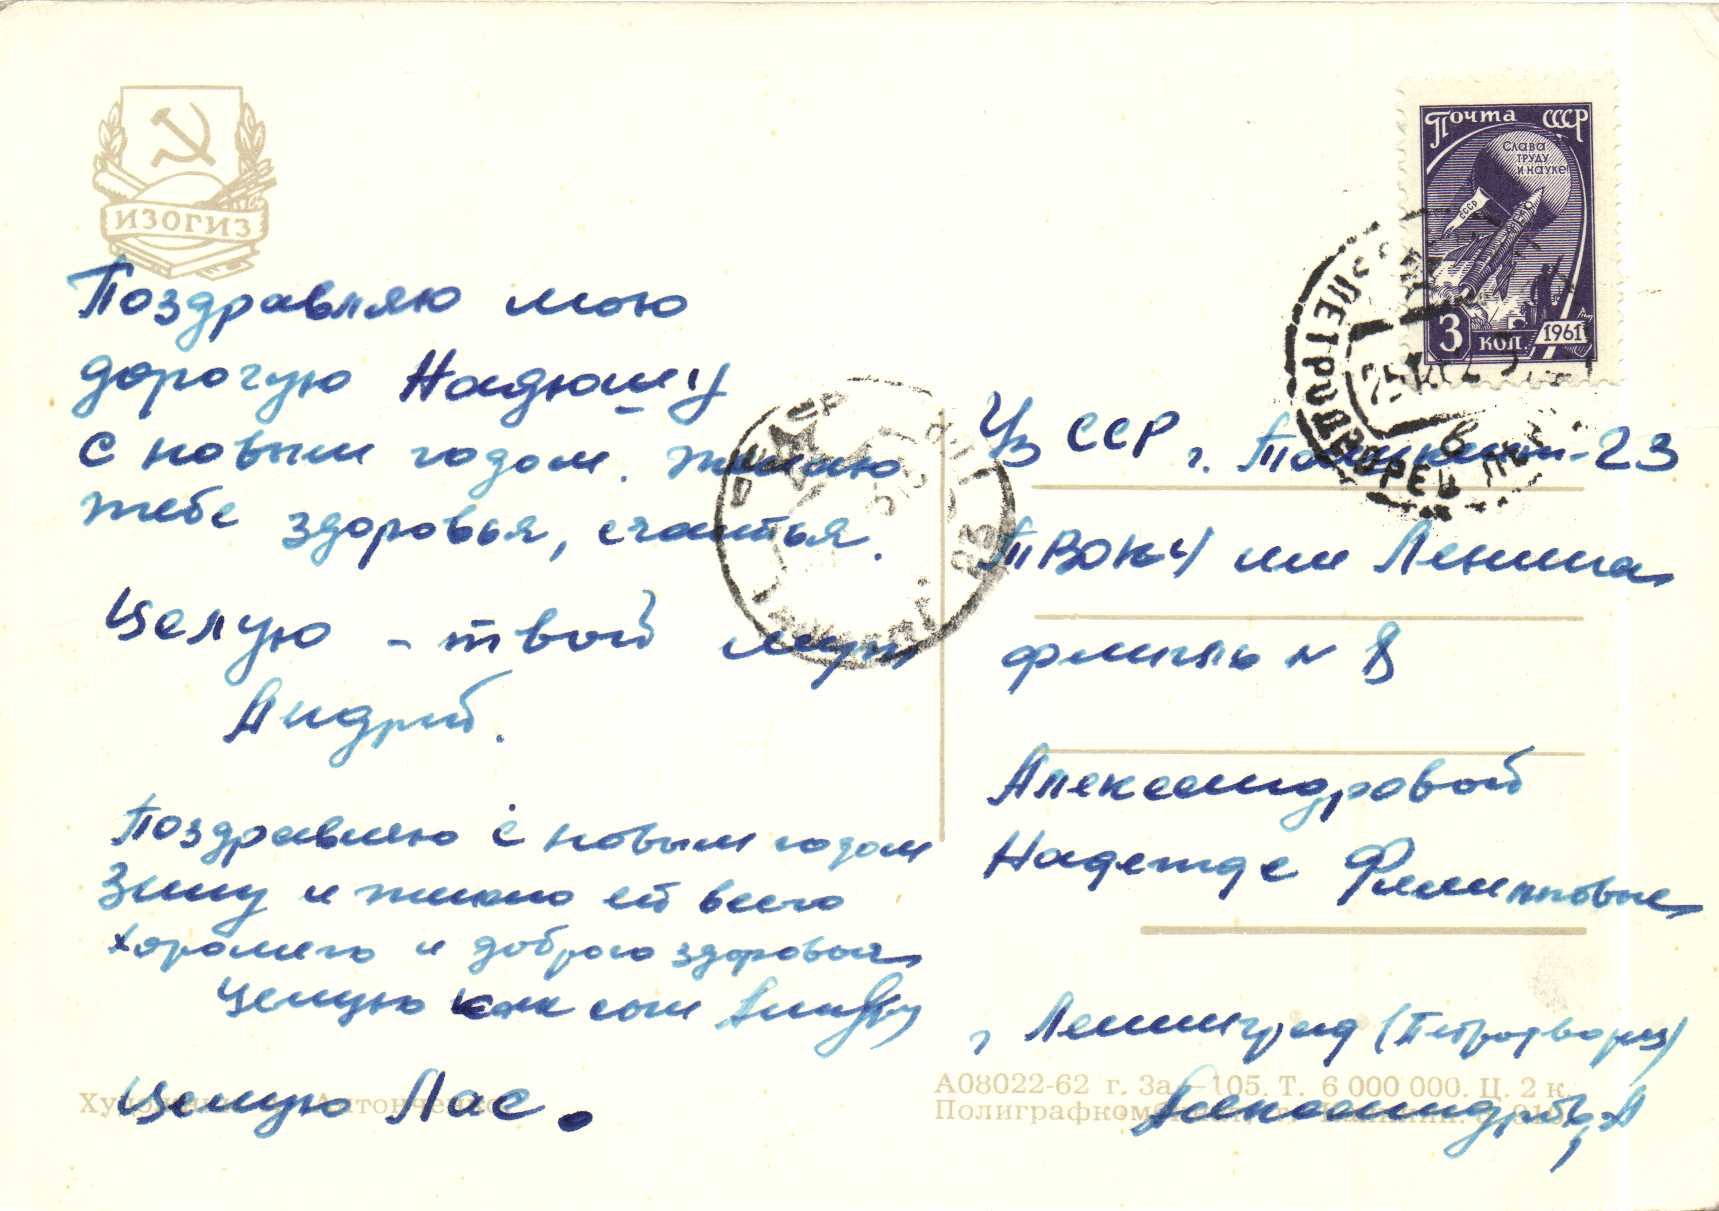 ИЗОГИЗ
Почта СССР
СЛАВА
ТРУДУ
И НАУКЕ!
СССР
3 коп. 1961
ПЕТРОДВОРЕЦ
Поздравляю мою
дорогую Надюшу
с новым годом. Желаю
тебе здоровья, счастья.
Целую - твой муж
Андрей.
Поздравляю с новым годом
Зину и желаю ей всего
хорошего и доброго здоровья
Целую как сын Андрей
Целую Вас.
Уз ССР г. Ташкент-23
ТВОКУ им Ленина
флигель № 8
Александровой
Надежде Филипповне
г Ленинград (Петродворец)
Александров А
А08022-62 г. За 105. Т. 6 000 000. Ц. 2 к.